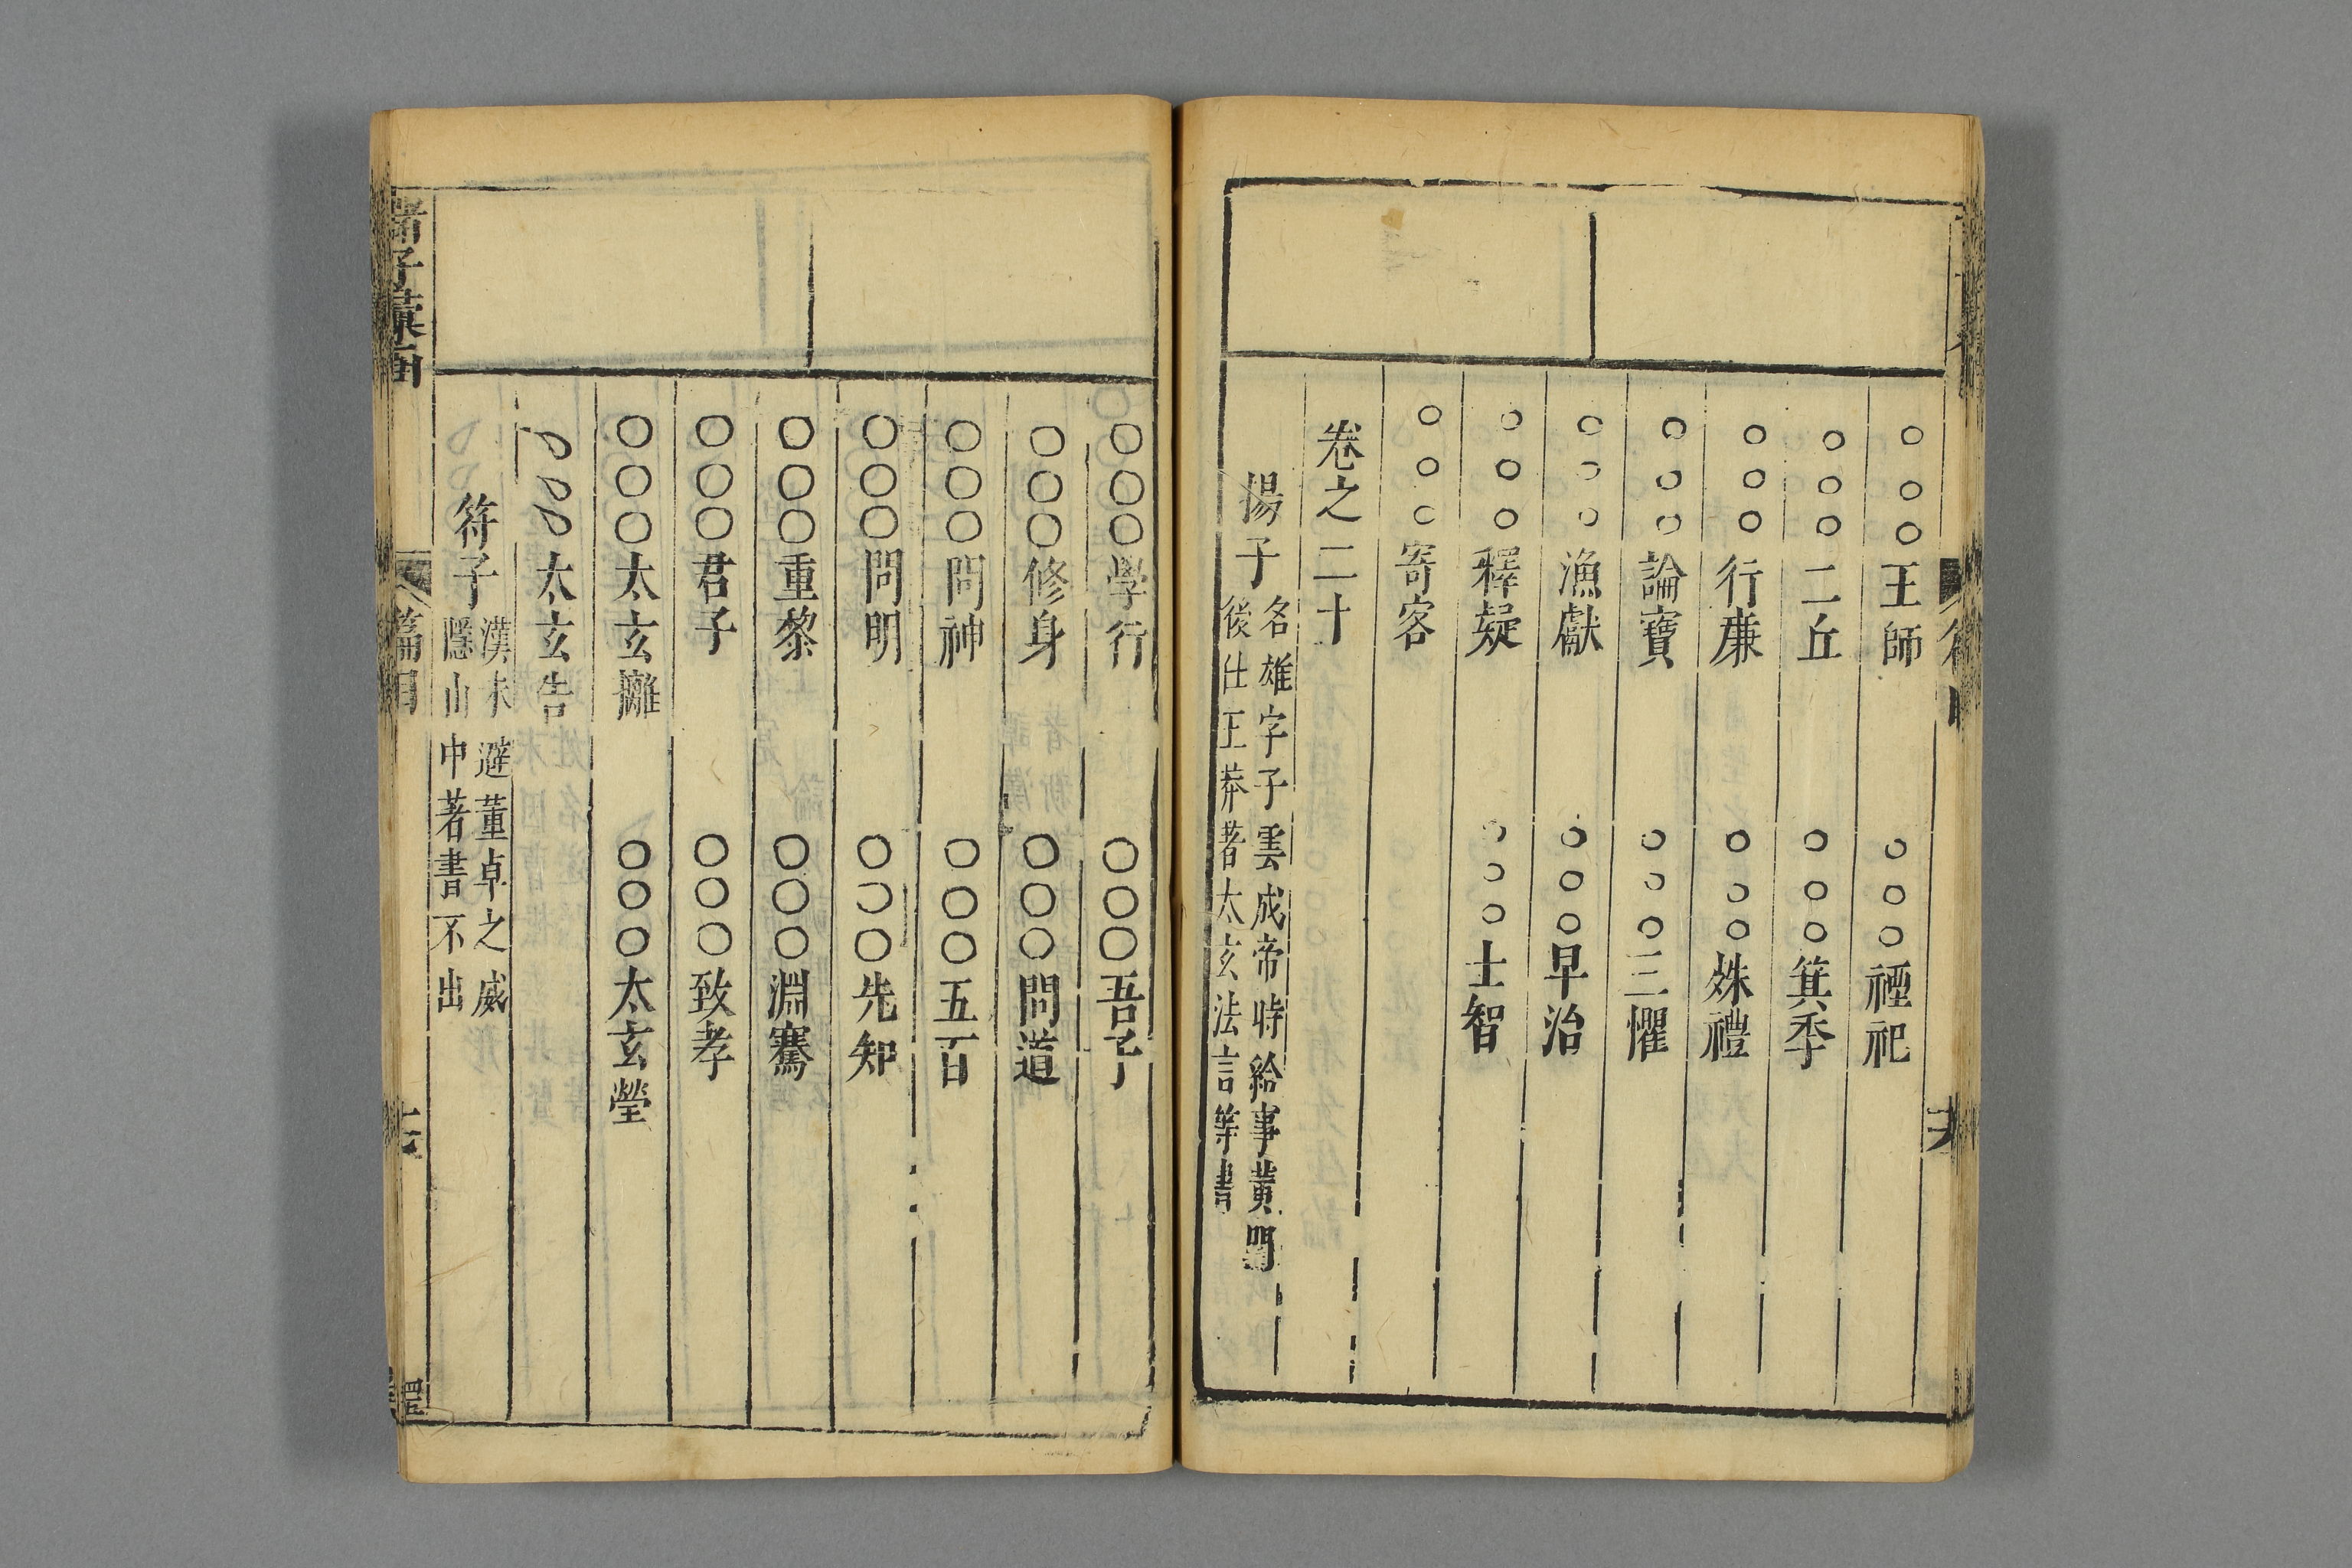 ○○○王師 ○○○禋祀
○○○二丘 ○○○箕季
○○○行廉 ○○○姝禮
○○○論寶 ○○○三懼
○○○漁獻 ○○○早治
○○○釋疑 ○○○士智
○○○寄客
卷之二十
揚子 名雄字子雲成帝時給事黃門
後仕王莽著太玄法言等書
○○○學行 ○○○吾子
○○○修身 ○○○問道
○○○問神 ○○○五百
○○○問明 ○○○先知
○○○重黎 ○○○淵騫
○○○君子 ○○○致孝
○○○太玄攡 ○○○太玄瑩
○○○太玄告
符子 漢末避董卓之威
隱山中著書不出
諸子彙函
篇目